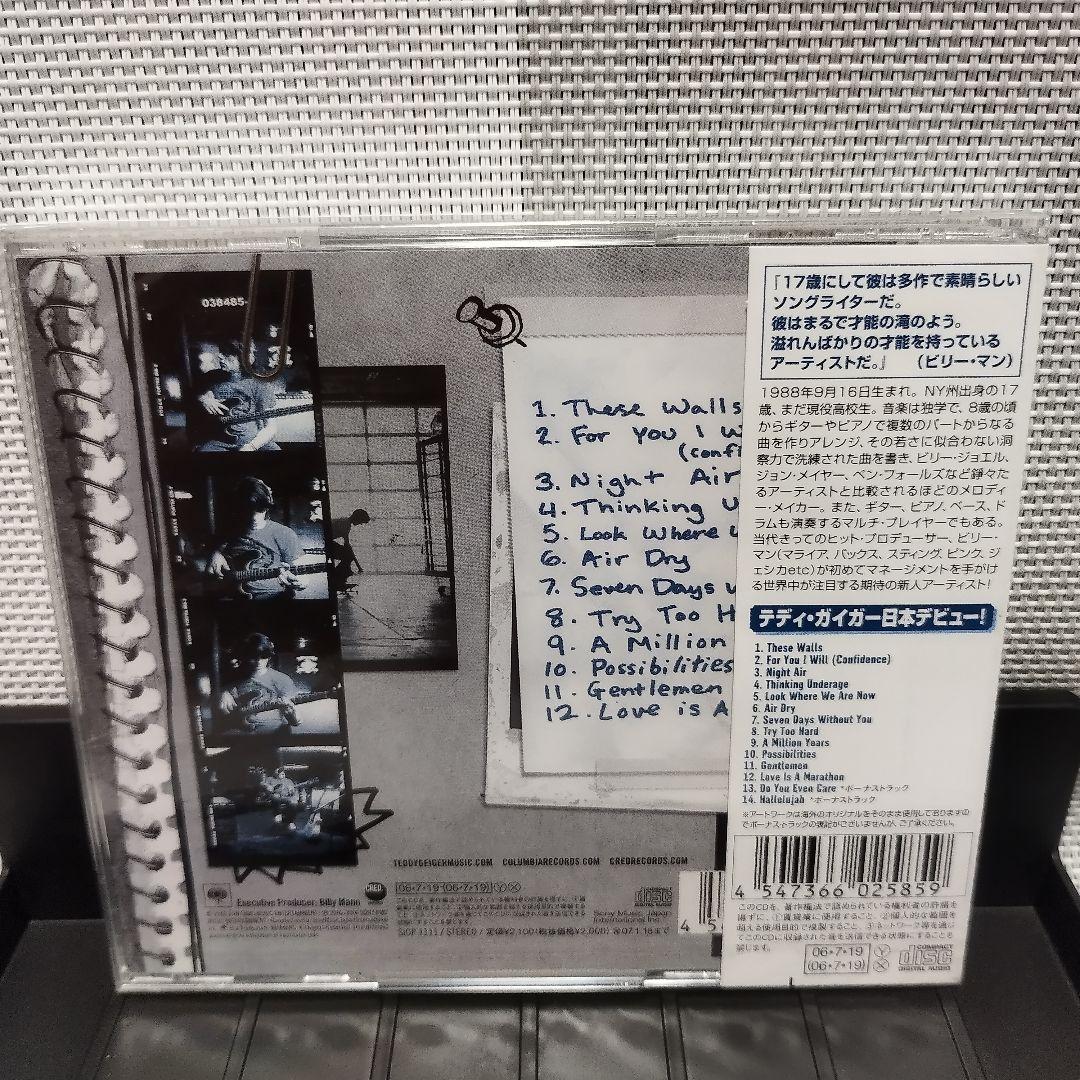 038485-
1. These Walls
2. For You I W
(confi
3. Night Air
4. Thinking U
5. Look Where W
6. Air Dry
7. Seven Days W
8. Try Too H
9. A Million
10. Possibilities
11. Gentlemen
12. Love is A
TEDDYGEIGERMUSIC.COM COLUMBIARECORDS.COM CREDRECORDS.COM
Executive Producer: Billy Mann
CRED.
06・7・19 (06・7・19) Ⓨ Ⓧ
COMPACT disc DIGITAL AUDIO
Sony Music Japan
International Inc.
STEREO / 定価¥2,100(税抜価格¥2,000) 07.1.18まで
4 5
『17歳にして彼は多作で素晴らしい
ソングライターだ。
彼はまるで才能の滝のよう。
溢れんばかりの才能を持っている
アーティストだ。』 (ビリー・マン)
1988年9月16日生まれ。NY州出身の17
歳、まだ現役高校生。音楽は独学で、8歳の頃
からギターやピアノで複数のパートからなる
曲を作りアレンジ、その若さに似合わない洞
察力で洗練された曲を書き、ビリー・ジョエル、
ジョン・メイヤー、ベン・フォールズなど錚々た
るアーティストと比較されるほどのメロディ
ー・メイカー。また、ギター、ピアノ、ベース、ド
ラムも演奏するマルチ・プレイヤーでもある。
当代きってのヒット・プロデューサー、ビリー・
マン(マライア、バックス、スティング、ピンク、ジ
ェシカetc)が初めてマネージメントを手がけ
る世界中が注目する期待の新人アーティスト!
テディ・ガイガー日本デビュー!
1. These Walls
2. For You I Will (Confidence)
3. Night Air
4. Thinking Underage
5. Look Where We Are Now
6. Air Dry
7. Seven Days Without You
8. Try Too Hard
9. A Million Years
10. Possibilities
11. Gentlemen
12. Love Is A Marathon
13. Do You Even Care *ボーナストラック
14. Hallelujah *ボーナストラック
※アートワークは海外のオリジナルをそのまま使用しておりますの
でボーナストラックの表記がございませんが、ご了承ください。
4 547366 025859
このCDを、著作権法で認められている権利者の許諾を
得ずに、①賃貸業に使用すること、②個人的な範囲を
超える使用目的で複製すること、③ネットワーク等を通じ
てこのCDに収録された音を送信できる状態にすることを
禁じます。
06・7・19 Ⓨ
(06・7・19) Ⓧ
COMPACT disc DIGITAL AUDIO